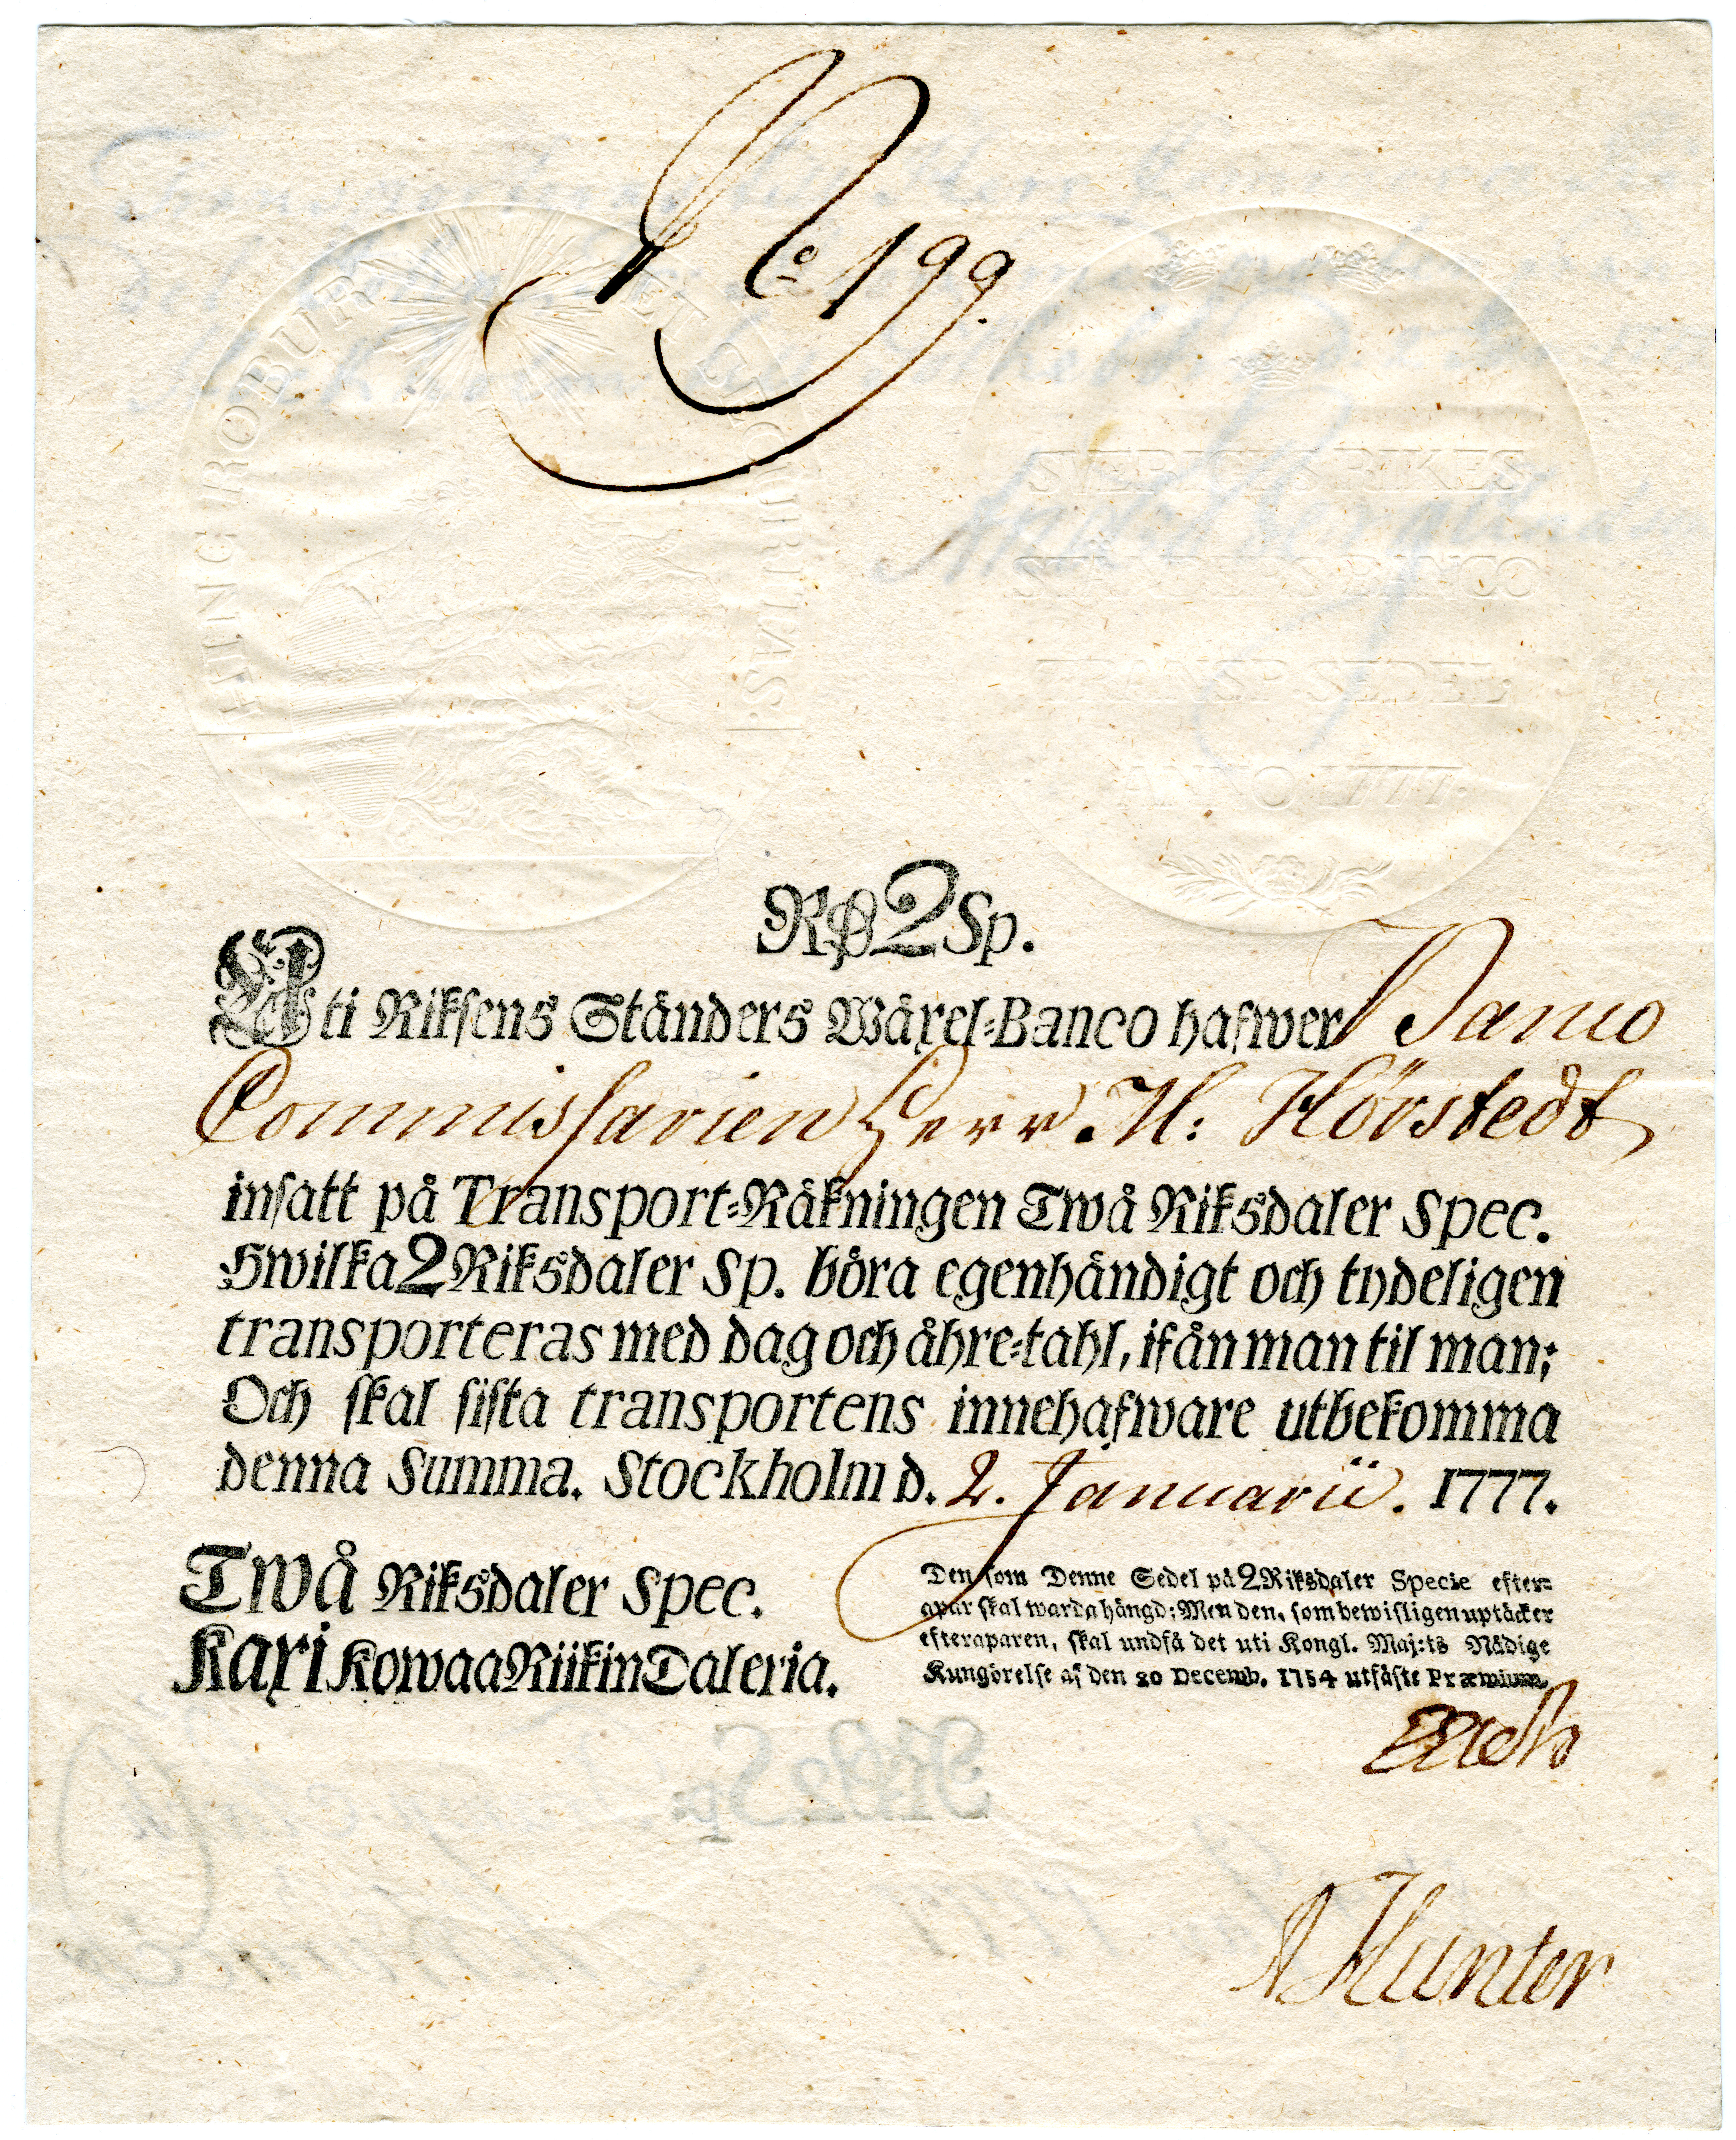 No 199.
HINC ROBUR ET SECURITAS
SVERIGES RIKES
STÄNDERS BANCO
TRANSP SEDEL
ANNO 1777.
RD 2 Sp.
Uti Riksens Ständers Wäxel-Banco hafwer Banco
Commissarien Herr. H: Hörstedt
insatt på Transport-Räkningen Twå Riksdaler Spec.
Hwilka 2 Riksdaler Sp. böra egenhändigt och tydeligen
transporteras med dag och åhre-tahl, ifån man til man;
Och skal sista transportens innehafware utbekomma
denna Summa. Stockholm d. 2. Januarii. 1777.
Twå Riksdaler Spec.
Kaxi Kowaa Riikin Daleria.
Den som Denne Sedel på 2 Riksdaler Specie efter-
apar skal warda hängd; Men den, som bewisligen uptäcker
efteraparen, skal undfå det uti Kongl. Maj:ts Nådige
Kungörelse af den 20 Decemb. 1754 utfäste Præmium.
Hunter